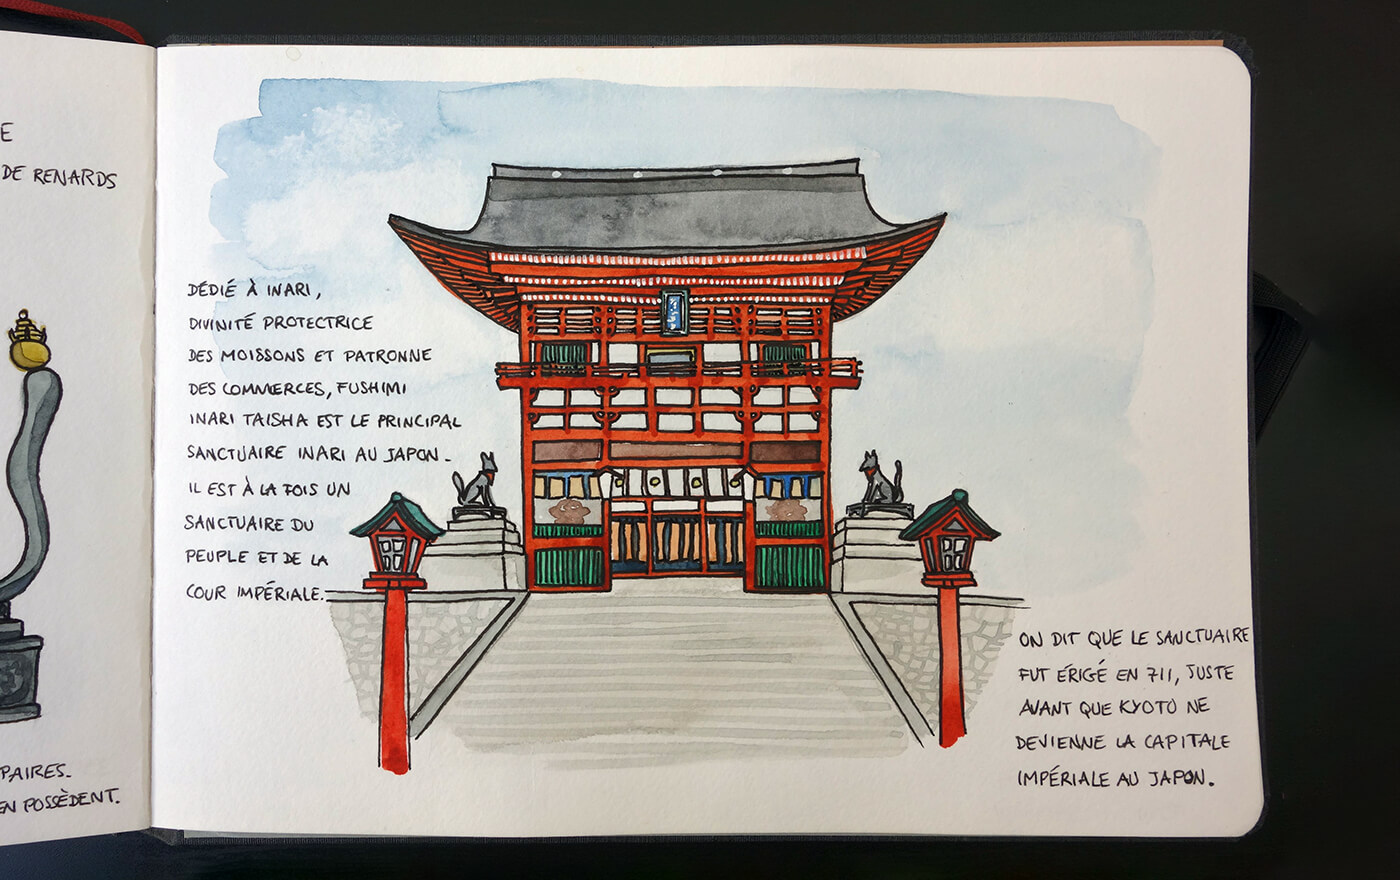 E
DE RENARDS
PAIRES.
EN POSSÈDENT.
DÉDIÉ À INARI,
DIVINITÉ PROTECTRICE
DES MOISSONS ET PATRONNE
DES COMMERCES, FUSHIMI
INARI TAISHA EST LE PRINCIPAL
SANCTUAIRE INARI AU JAPON.
IL EST À LA FOIS UN
SANCTUAIRE DU
PEUPLE ET DE LA
COUR IMPÉRIALE.
ON DIT QUE LE SANCTUAIRE
FUT ÉRIGÉ EN 711, JUSTE
AVANT QUE KYOTO NE
DEVIENNE LA CAPITALE
IMPÉRIALE AU JAPON.